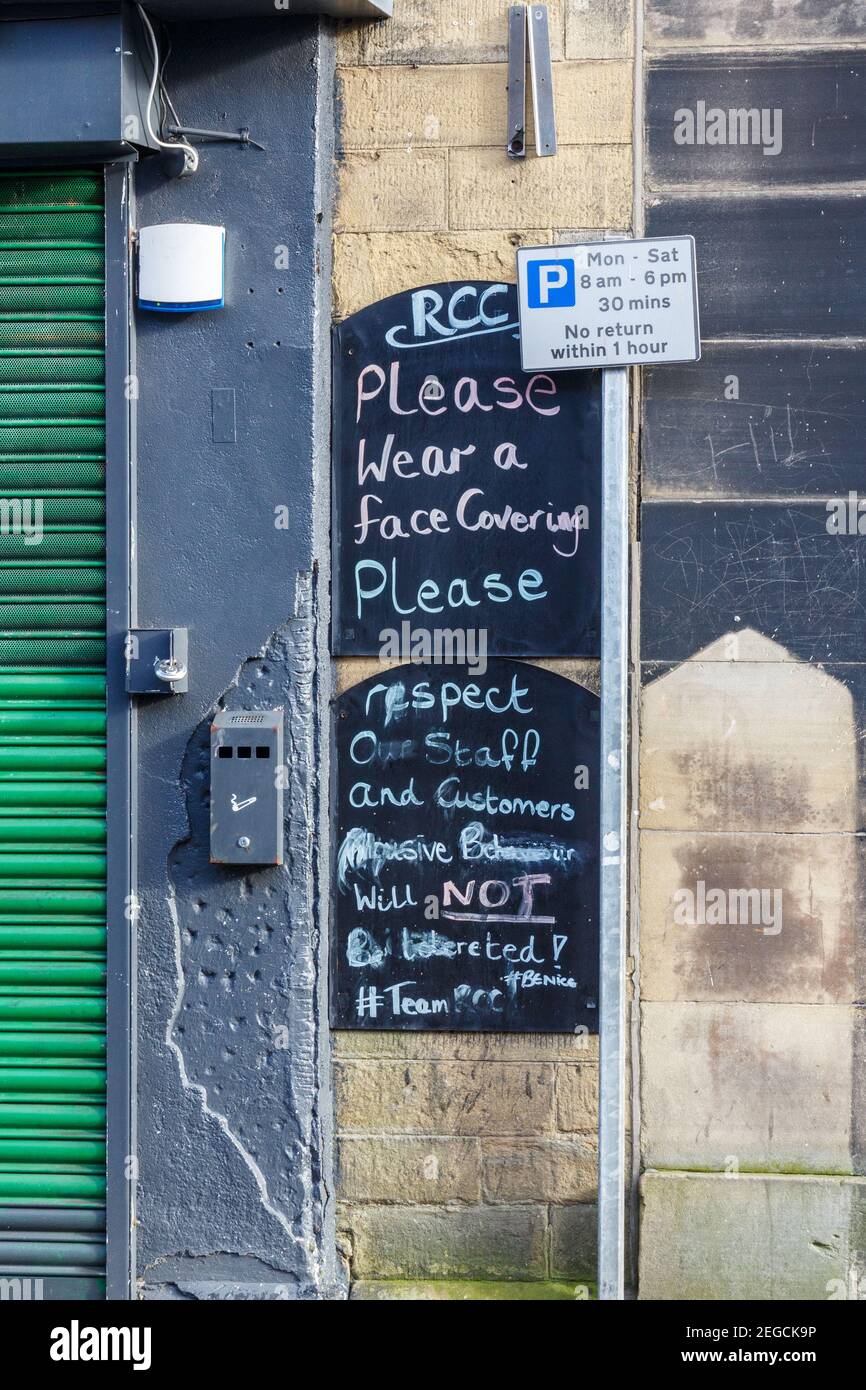 RCC
Please
Wear a
face Covering
Please
P
Mon - Sat
8 am - 6 pm
30 mins
No return
within 1 hour
respect
Our Staff
and Customers
Will NOT
#BENice
#Team RCC
alamy
Image ID: 2EGCK9P
www.alamy.com